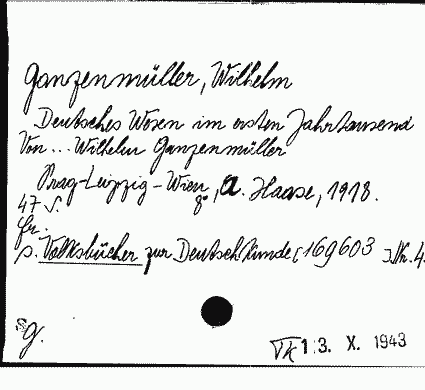 Ganzenmüller, Wilhelm
Deutsches Wesen im ersten Jahrtausend
Von ... Wilhelm Ganzenmüller
Prag-Leipzig-Wien, A. Haase, 1918.
47 S. 8°
fr.
s. Volksbücher zur Deutschkunde [169603 ] Nr. 4.
g.
VK 13. X. 1943